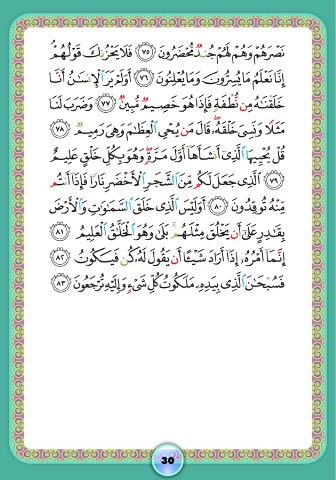 نَصْرَهُمْ وَهُمْ لَهُمْ جُندٌ مُّحْضَرُونَ ٧٥ فَلَا يَحْزُنكَ قَوْلُهُمْ
إِنَّا نَعْلَمُ مَا يُسِرُّونَ وَمَا يُعْلِنُونَ ٧٦ أَوَلَمْ يَرَ الْإِنسَانُ أَنَّا
خَلَقْنَاهُ مِن نُّطْفَةٍ فَإِذَا هُوَ خَصِيمٌ مُّبِينٌ ٧٧ وَضَرَبَ لَنَا
مَثَلًا وَنَسِىَ خَلْقَهُۥ قَالَ مَن يُحْىِ الْعِظَامَ وَهِىَ رَمِيمٌ ٧٨
قُلْ يُحْيِيهَا الَّذِى أَنشَأَهَا أَوَّلَ مَرَّةٍ وَهُوَ بِكُلِّ خَلْقٍ عَلِيمٌ
٧٩ الَّذِى جَعَلَ لَكُم مِّنَ الشَّجَرِ الْأَخْضَرِ نَارًا فَإِذَا أَنتُم
مِّنْهُ تُوقِدُونَ ٨٠ أَوَلَيْسَ الَّذِى خَلَقَ السَّمَاوَاتِ وَالْأَرْضَ
بِقَادِرٍ عَلَىٰ أَن يَخْلُقَ مِثْلَهُم بَلَىٰ وَهُوَ الْخَلَّاقُ الْعَلِيمُ ٨١
إِنَّمَا أَمْرُهُۥ إِذَا أَرَادَ شَيْئًا أَن يَقُولَ لَهُۥ كُن فَيَكُونُ ٨٢
فَسُبْحَانَ الَّذِى بِيَدِهِۦ مَلَكُوتُ كُلِّ شَىْءٍ وَإِلَيْهِ تُرْجَعُونَ ٨٣
30